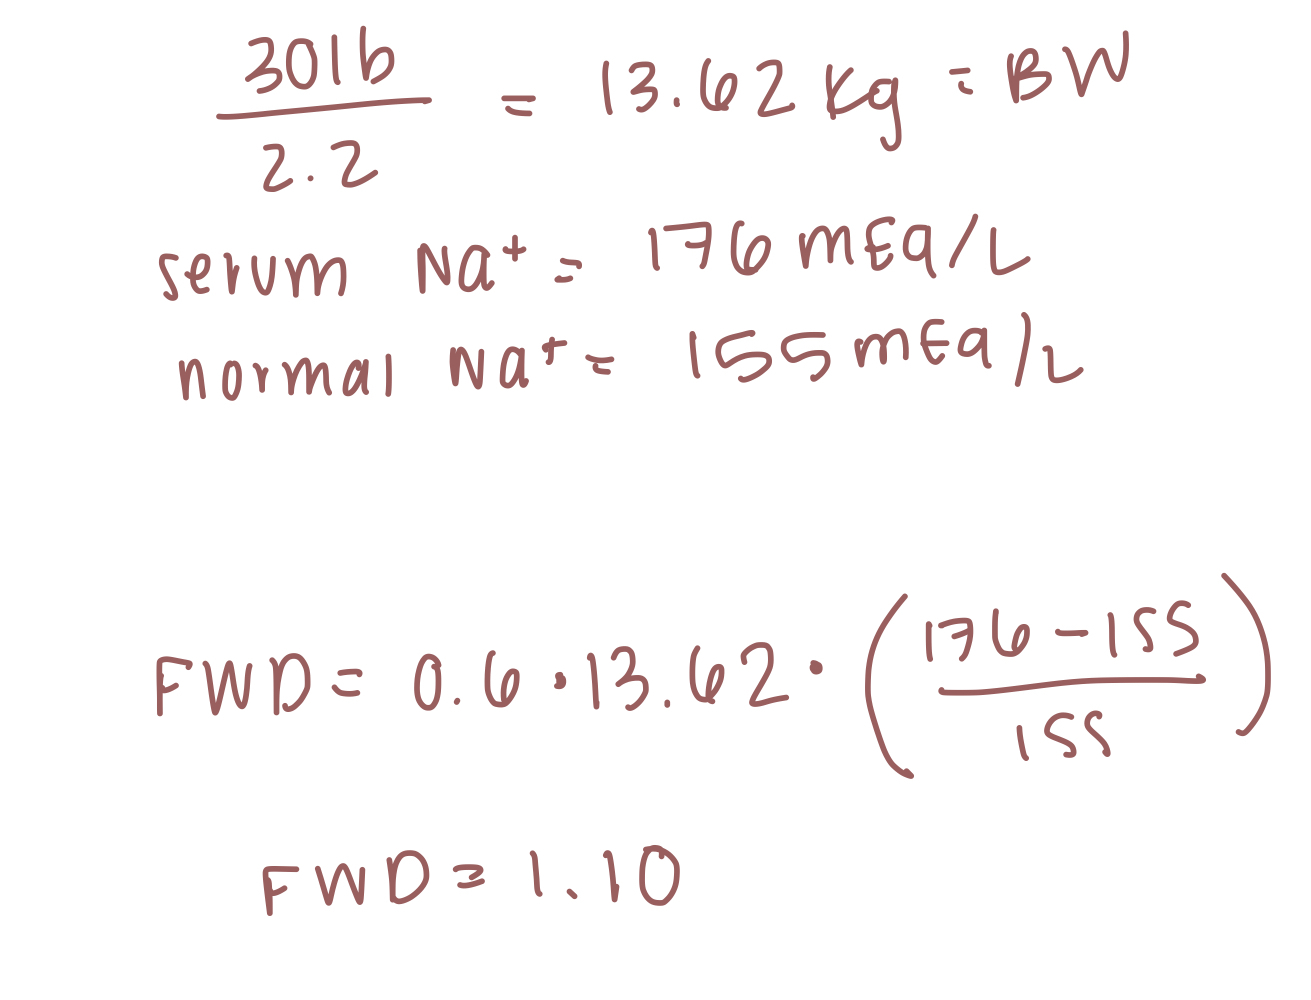 30lb / 2.2 = 13.62 kg = BW
serum Na⁺ = 176 mEq/L
normal Na⁺ = 155 mEq/L
FWD = 0.6 · 13.62 · ( 176 - 155 / 155 )
FWD = 1.10